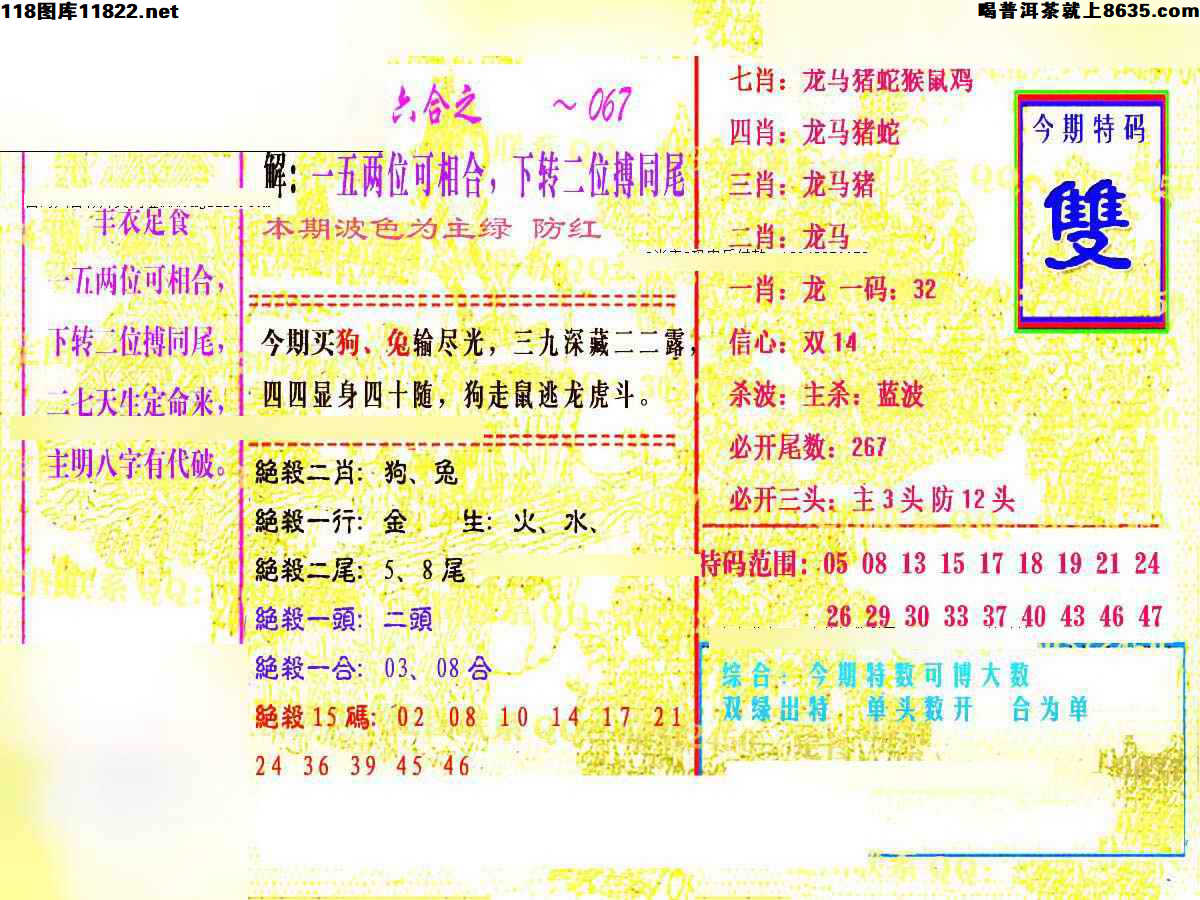 118图库11822.net
喝普洱茶就上8635.com
六合之 ～067
解：一五两位可相合，下转二位搏同尾
本期波色为主绿 防红
丰衣足食
一五两位可相合，
下转二位搏同尾，
二七天生定命来，
主明八字有代破。
今期买狗、兔输尽光，三九深藏二二露，
四四显身四十随，狗走鼠逃龙虎斗。
絕殺二肖：狗、兔
絕殺一行：金 生：火、水、
絕殺二尾：5、8尾
絕殺一頭：二頭
絕殺一合：03、08合
絕殺15碼：02 08 10 14 17 21
24 36 39 45 46
七肖：龙马猪蛇猴鼠鸡
四肖：龙马猪蛇
三肖：龙马猪
二肖：龙马
一肖：龙 一码：32
信心：双14
杀波：主杀：蓝波
必开尾数：267
必开三头：主3头防12头
今期特码
雙
特码范围：05 08 13 15 17 18 19 21 24
26 29 30 33 37 40 43 46 47
综合：今期特数可博大数
双绿出特．单头数开 合为单